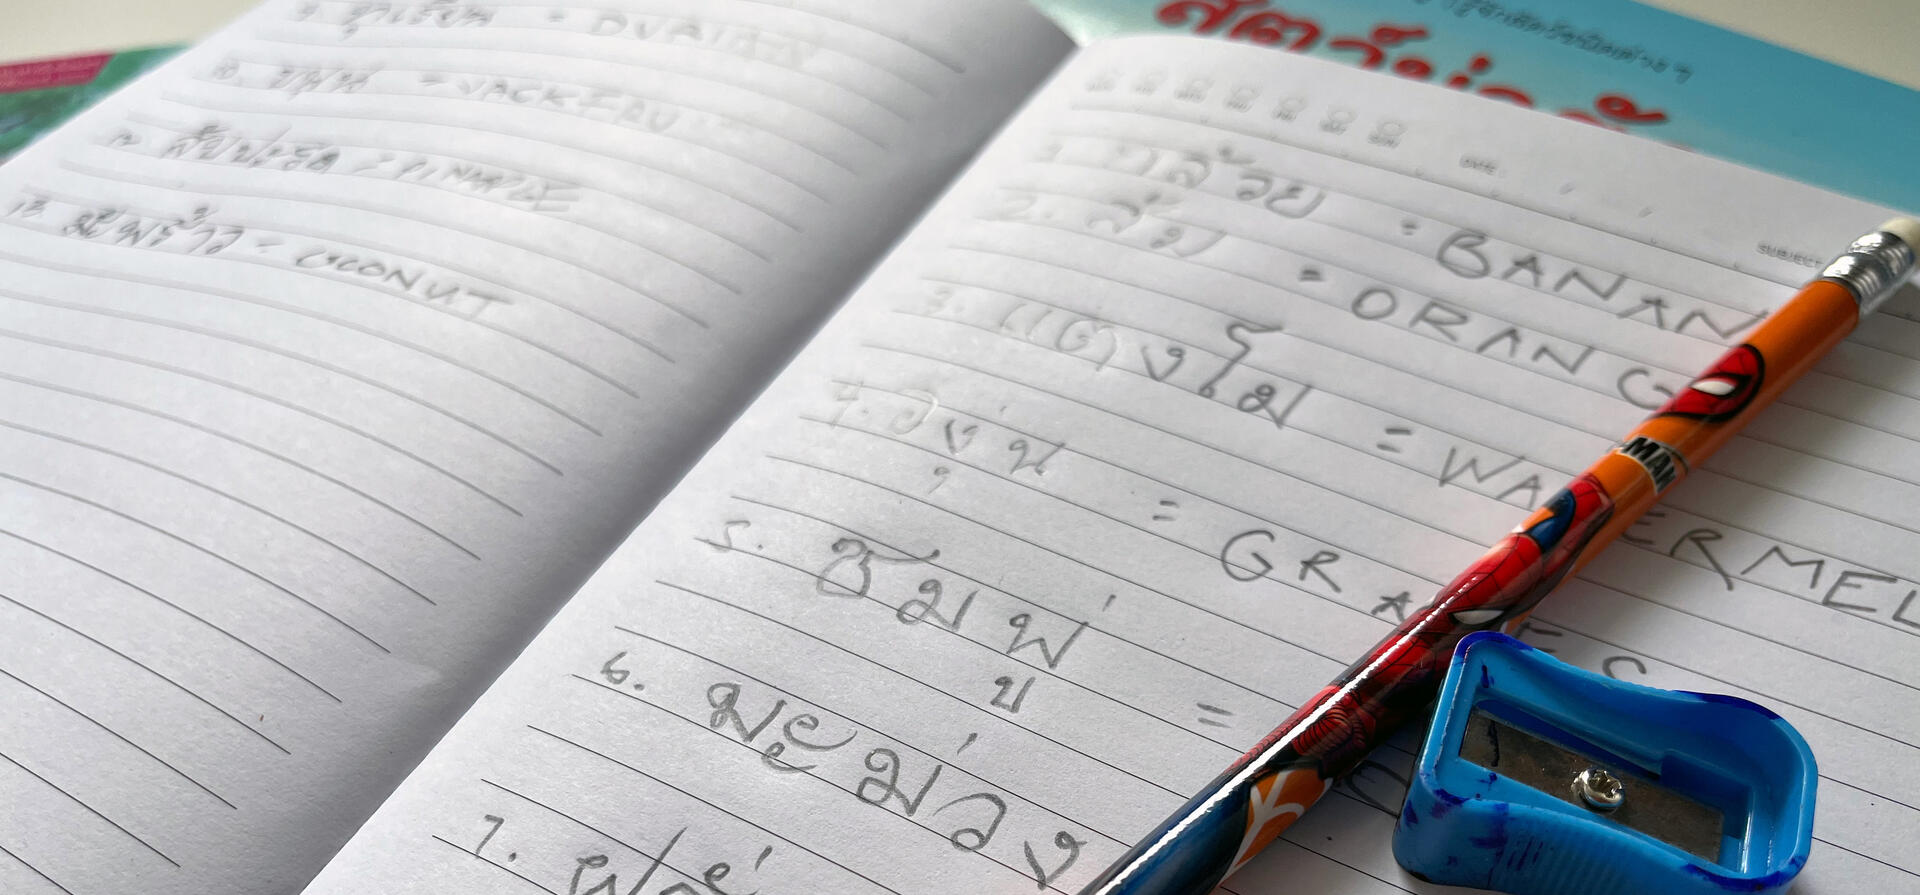 ทุเรียน = DURIAN
10. ขนุน = JACKFRU
12. สับปะรด = PINAPLE
13. มะพร้าว = COCONUT
สัตว์น่ารัก
DATE
SUBJECT
1. กล้วย = BANAN
2. ส้ม = ORANG
3. แตงโม = WATERMEL
4. องุ่น = GRAPES
5. ชมพู่ =
6. มะม่วง
7. ฝรั่
MAN